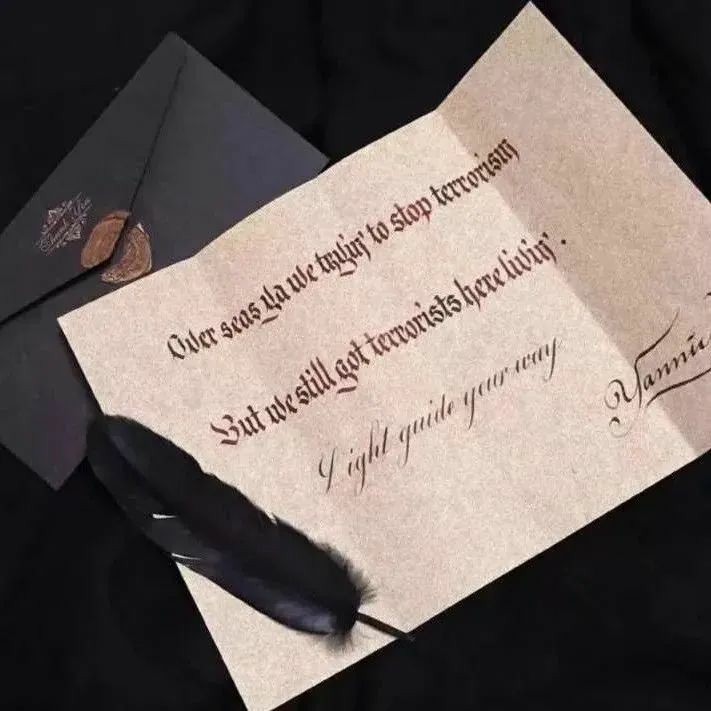 Over seas ya we tryin' to stop terrorism
But we still got terrorists here livin'.
Light guide your way